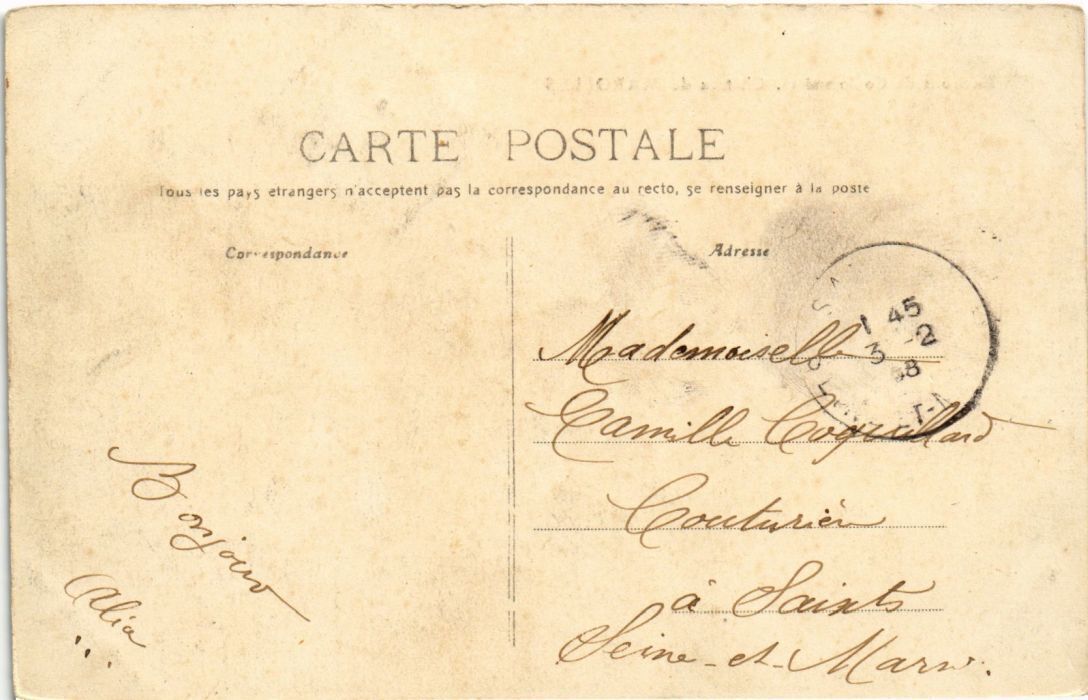 CARTE POSTALE
Tous les pays etrangers n'acceptent pas la correspondance au recto, se renseigner à la poste
Correspondance
Adresse
1 45
3 -2
08
Mademoiselle
Camille Coquillard
Couturière
à Saints
Seine-et-Marne.
Bonjour
Alia